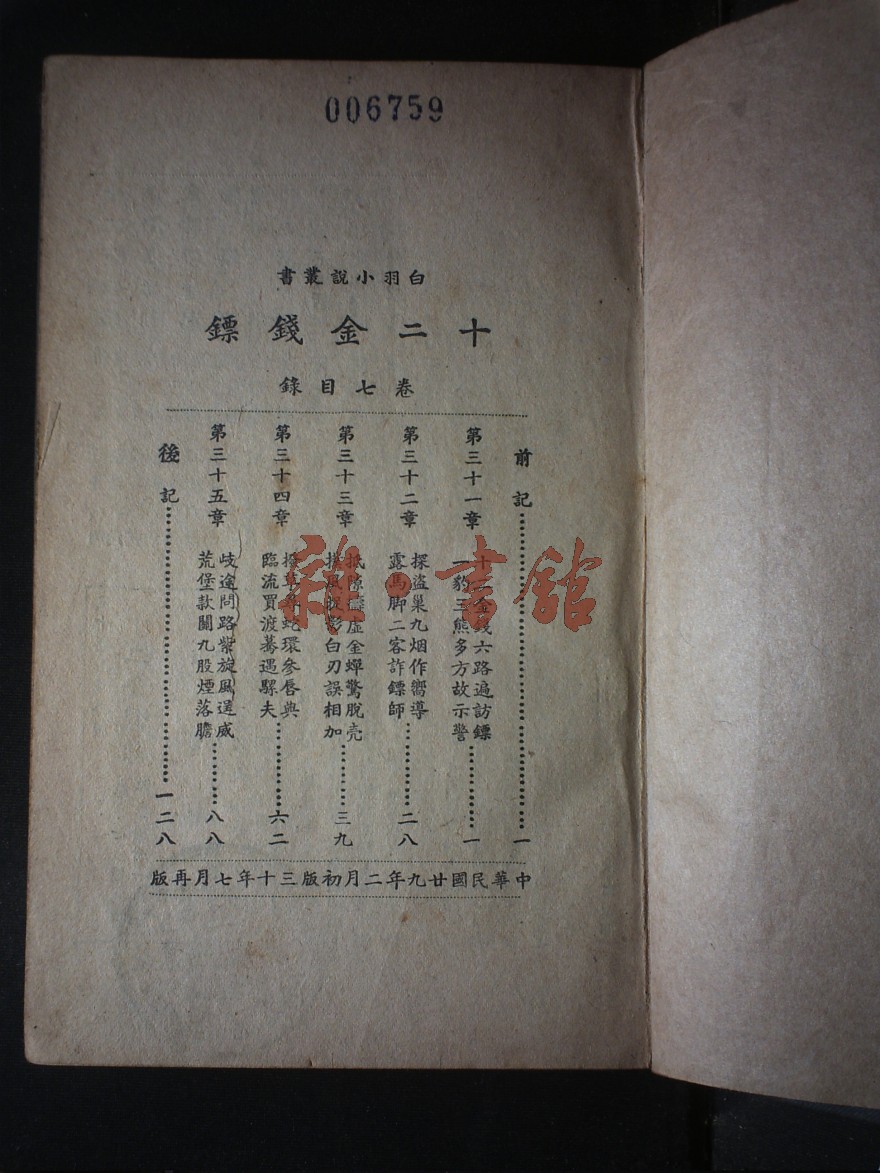 006759
白羽小說叢書
十二金錢鏢
卷七目錄
前記…………一
第三十一章 十二金錢六路遍訪鏢
一豹三熊多方故示警…………一
第三十二章 探盜巢九烟作嚮導
露馬脚二客詐鏢師…………二八
第三十三章 抵隙擣虛金蟬驚脫壳
捕風捉影白刃誤相加…………三九
第三十四章 撥草尋蛇環參唇典
臨流買渡驀遇騾夫…………六二
第三十五章 歧途問路紫旋風逞威
荒堡款關九股煙落膽…………八八
後記…………一二八
中華民國廿九年二月初版三十年七月再版
雜·書館